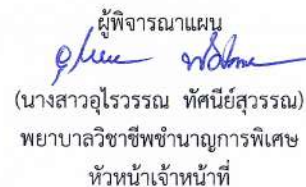 ผู้พิจารณาแผน
(นางสาวอุไรวรรณ ทัศนีย์สุวรรณ)
พยาบาลวิชาชีพชำนาญการพิเศษ
หัวหน้าเจ้าหน้าที่